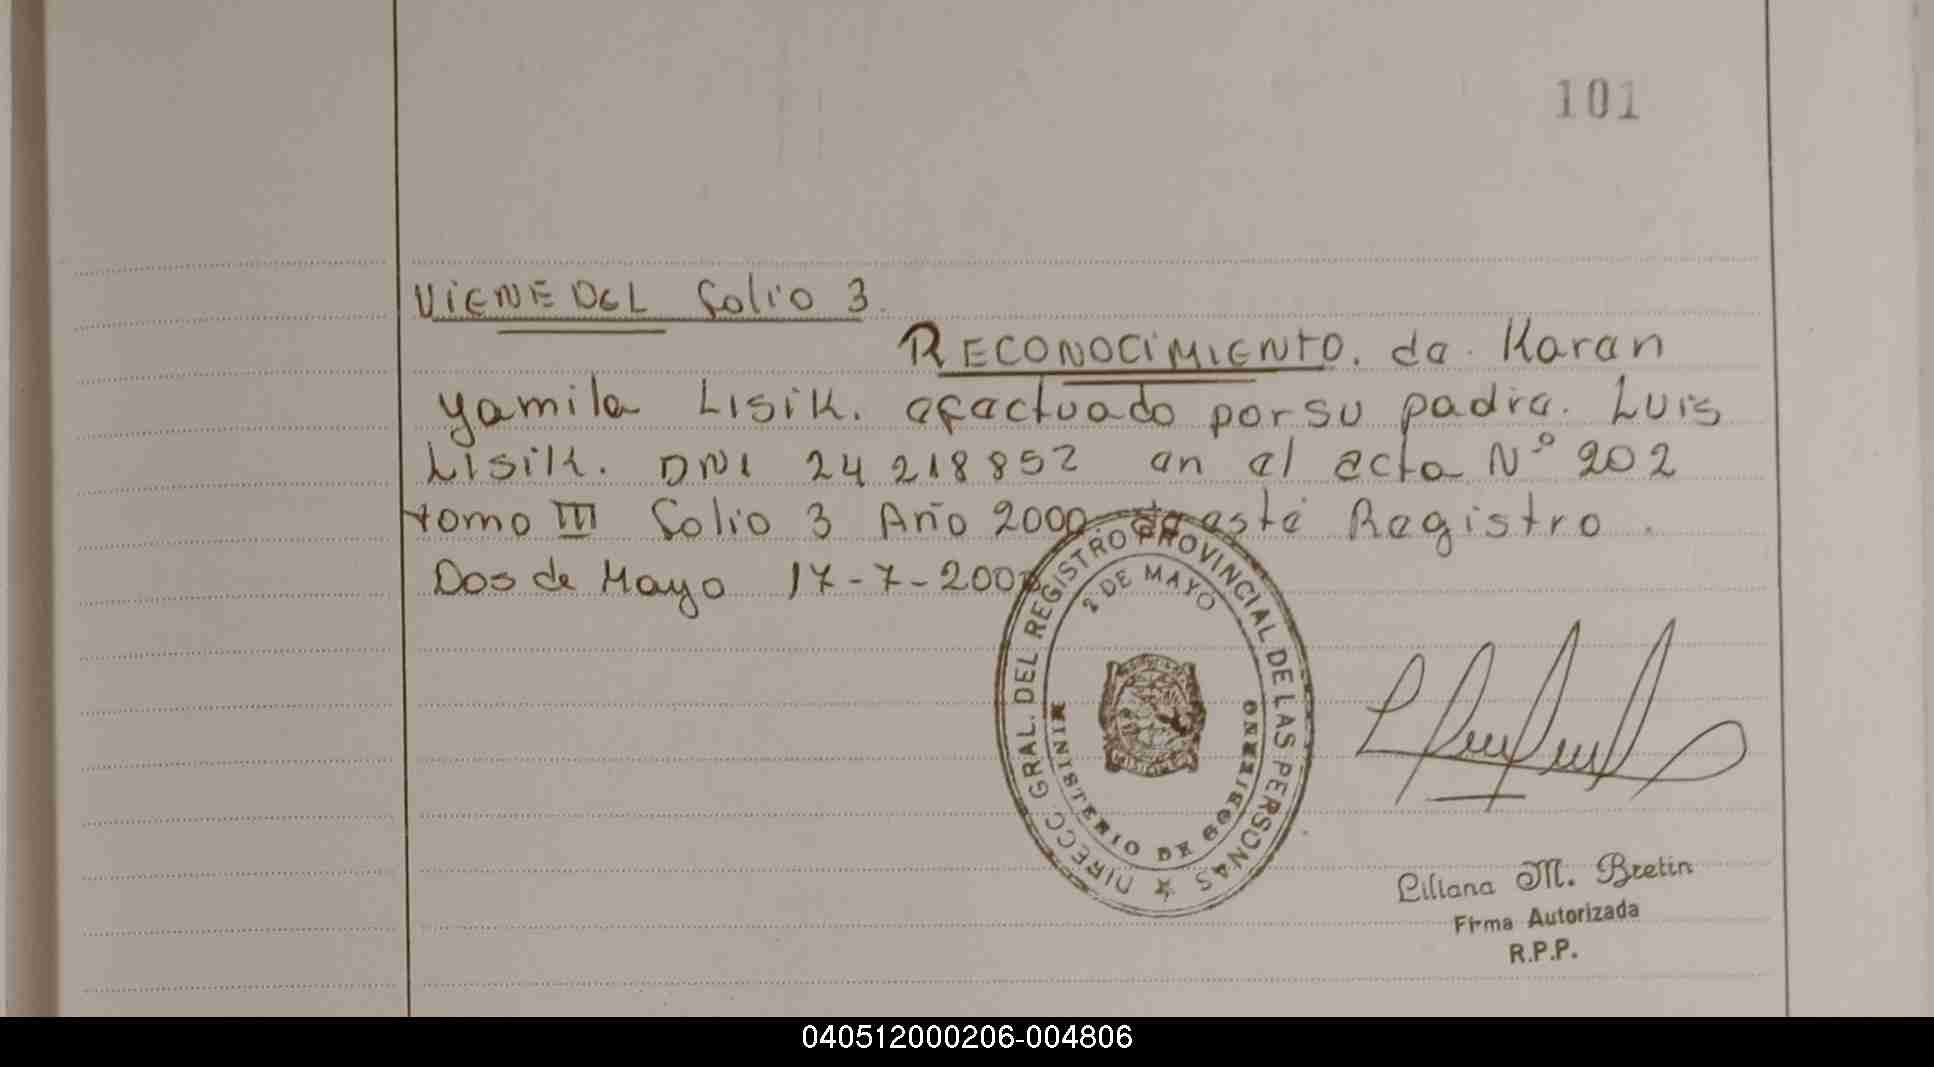 101
VIENE DEL Folio 3.
RECONOCIMIENTO. de. Karen
Yamila Lisik. efectuado por su padre. Luis
Lisik. DNI 24 218852 en el acta Nº 202
tomo III Folio 3 Año 2000. de este Registro.
Dos de Mayo 17-7-2000
DIRECC GRAL. DEL REGISTRO PROVINCIAL DE LAS PERSONAS
2 DE MAYO
MINISTERIO DE GOBIERNO
Liliana M. Bretin
Firma Autorizada
R.P.P.
040512000206-004806